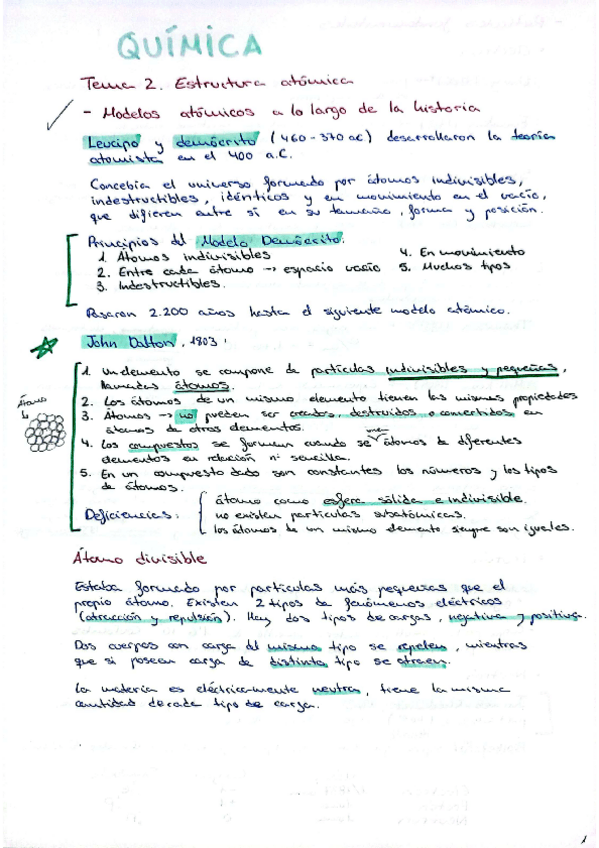 QUÍMICA
Tema 2. Estructura atómica
- Modelos atómicos a lo largo de la historia
Leucipo y demócrito (460-370 ac) desarrollaron la teoría
atomista en el 400 a.C.
Concebía el universo formado por átomos indivisibles,
indestructibles, idénticos y en movimiento en el vacío,
que difieren entre sí en su tamaño, forma y posición.
Principios del Modelo Demócrito.
1. Átomos indivisibles
2. Entre cada átomo → espacio vacío
3. Indestructibles.
4. En movimiento
5. Muchos tipos
Pasaron 2.200 años hasta el siguiente modelo atómico.
John Dalton, 1803:
1. Un elemento se compone de partículas indivisibles y pequeñas,
llamadas átomos.
2. Los átomos de un mismo elemento tienen las mismas propiedades
Átomo
3. Átomos → no pueden ser creados, destruidos o convertidos en
átomos de otros elementos.
4. Los compuestos se forman cuando se átomos de diferentes
elementos en relación nº sencilla.
5. En un compuesto dado son constantes los números y los tipos
de átomos.
Deficiencias:
átomo como esfera sólida e indivisible.
no existen partículas subatómicas.
los átomos de un mismo elemento siempre son iguales.
Átomo divisible
Estaba formado por partículas más pequeñas que el
propio átomo. Existen 2 tipos de fenómenos eléctricos
(atracción y repulsión). Hay dos tipos de cargas, negativa y positiva.
Dos cuerpos con carga del mismo tipo se repelen, mientras
que si posean carga de distinto tipo se atraen.
La materia es eléctricamente neutra, tiene la misma
cantidad de cada tipo de carga.
1